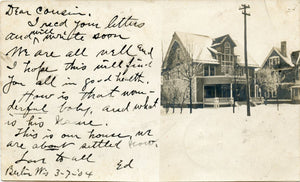 Dear Cousin.
I recd your letters
and will write soon
We are all well and
I hope this will find
you all in good health.
How is that won-
derful baby, and what
is his name.
This is our house, we
are about settled now.
Love to all
Ed
Berlin Wis 3-7-04